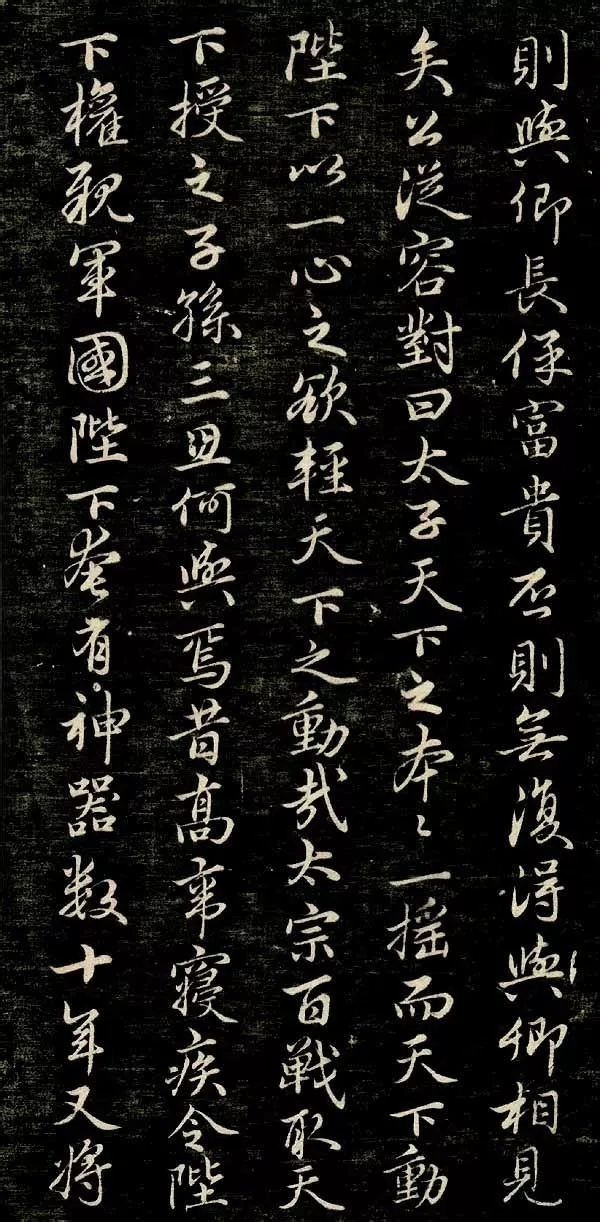 則與卿長保富貴否則無復得與卿相見
矣公從容對曰太子天下之本〻一摇而天下動
陛下以一心之欲輕天下之動哉太宗百戰取天
下授之子孫三思何與焉昔高寢疾令陛
下權親軍國陛下奄有神器数十年又將